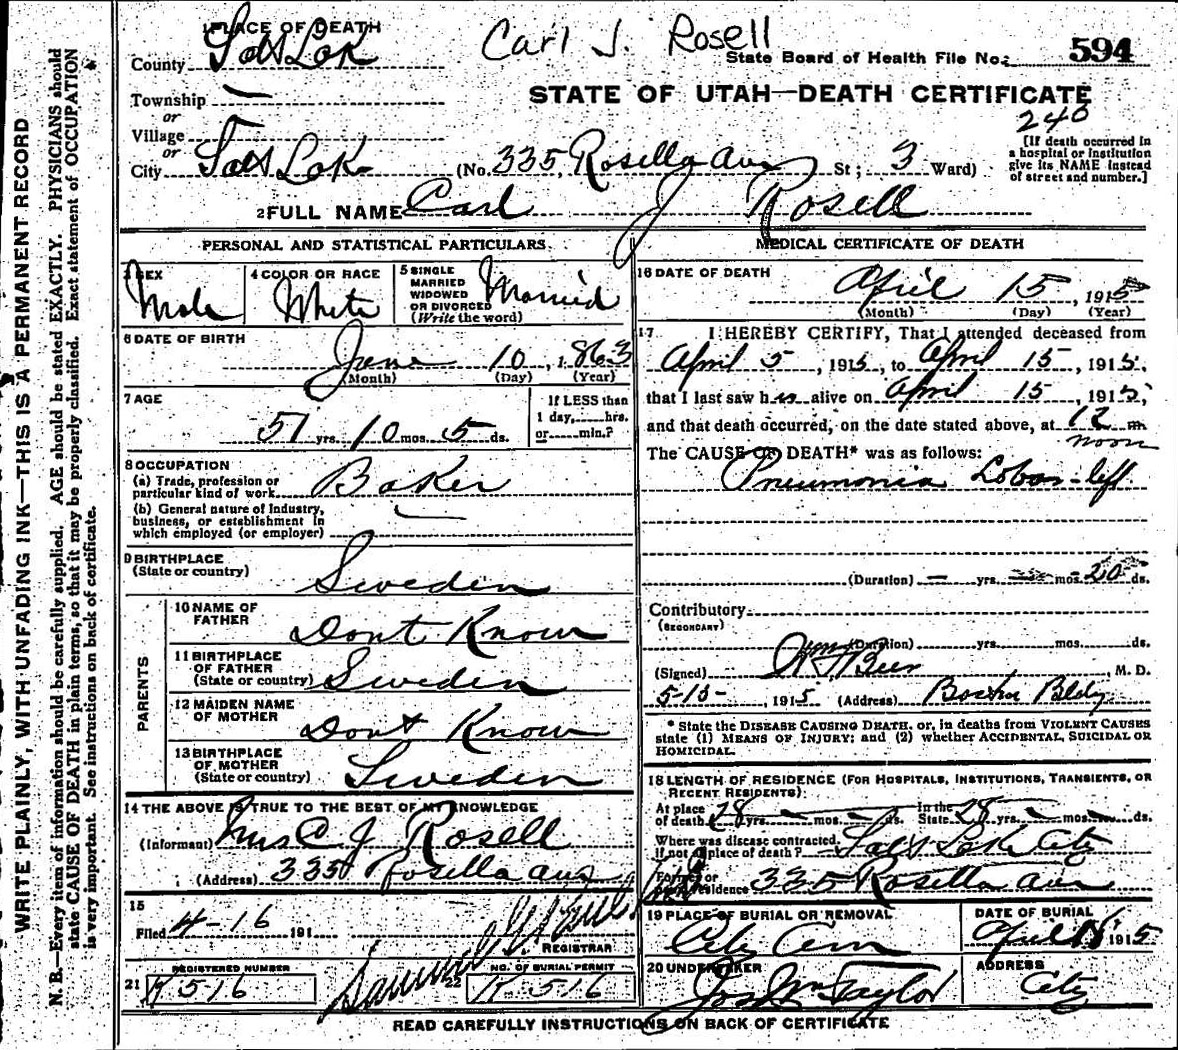 WRITE PLAINLY, WITH UNFADING INK—THIS IS A PERMANENT RECORD
N. B.—Every item of information should be carefully supplied. AGE should be stated EXACTLY. PHYSICIANS should
state CAUSE OF DEATH in plain terms, so that it may be properly classified. Exact statement of OCCUPATION
is very important. See instructions on back of certificate.
1 PLACE OF DEATH
Carl J. Rosell
County Salt Lak
State Board of Health File No. 594
Township —
or
Village
or
STATE OF UTAH—DEATH CERTIFICATE
240
City Salt Lake (No. 335, Rosella Ave St; 3 Ward)
[If death occurred in
a hospital or institution
give its NAME instead
of street and number.]
2 FULL NAME Carl J Rosell
PERSONAL AND STATISTICAL PARTICULARS.
3 SEX
Male
4 COLOR OR RACE
White
5 SINGLE
MARRIED
WIDOWED
OR DIVORCED
(Write the word)
Married
6 DATE OF BIRTH
June 10, 1863
(Month) (Day) (Year)
7 AGE
51 yrs. 10 mos. 5 ds.
If LESS than
1 day, hrs.
or min.?
8 OCCUPATION
(a) Trade, profession or
particular kind of work Baker
(b) General nature of Industry,
business, or establishment in
which employed (or employer)
9 BIRTHPLACE
(State or country) Sweden
PARENTS
10 NAME OF
FATHER Dont Know
11 BIRTHPLACE
OF FATHER
(State or country) Sweden
12 MAIDEN NAME
OF MOTHER Dont Know
13 BIRTHPLACE
OF MOTHER
(State or country) Sweden
14 THE ABOVE IS TRUE TO THE BEST OF MY KNOWLEDGE
(Informant) Mrs C. J. Rosell
(Address) 335 Rosella ave
15
Filed 4-16 191
REGISTRAR
21 REGISTERED NUMBER
K 516
22 NO. OF BURIAL PERMIT
K 516
MEDICAL CERTIFICATE OF DEATH
16 DATE OF DEATH
April 15, 1915
(Month) (Day) (Year)
17 I HEREBY CERTIFY, That I attended deceased from
April 5, 1915, to April 15, 1915,
that I last saw him alive on April 15, 1915,
and that death occurred, on the date stated above, at 12 m
noon
The CAUSE OF DEATH* was as follows:
Pneumonia Lobar - left
(Duration) — yrs. mos. 20 ds.
Contributory
(SECONDARY)
(Duration) yrs. mos. ds.
(Signed) M. D.
5-15-, 1915 (Address) Boston Bldg
* State the DISEASE CAUSING DEATH, or, in deaths from VIOLENT CAUSES
state (1) MEANS OF INJURY; and (2) whether ACCIDENTAL, SUICIDAL OR
HOMICIDAL.
18 LENGTH OF RESIDENCE (FOR HOSPITALS, INSTITUTIONS, TRANSIENTS, OR
RECENT RESIDENTS):
At place
of death 28 yrs. — mos. — ds. In the
State 28 yrs. — mos. — ds.
Where was disease contracted,
if not at place of death? Salt Lake City
Former or
usual residence 335 Rosella ave
19 PLACE OF BURIAL OR REMOVAL
City Cem
DATE OF BURIAL
April 1915
20 UNDERTAKER
Jos Wm Taylor
ADDRESS
City
READ CAREFULLY INSTRUCTIONS ON BACK OF CERTIFICATE